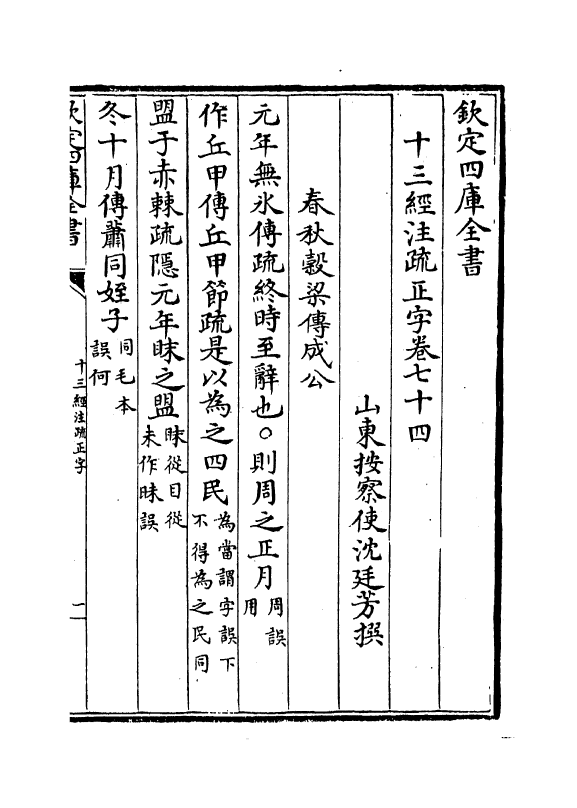 欽定四庫全書
十三經注疏正字卷七十四
山東按察使沈廷芳撰
春秋穀梁傳成公
元年無氷傳疏終時至辭也〇則周之正月周誤用
作丘甲傳丘甲節疏是以為之四民為當謂字誤下不得為之民同
盟于赤棘疏隱元年眛之盟眛從目從未作昧誤
冬十月傳蕭同姪子同毛本誤何
欽定四庫全書
十三經注疏正字
一